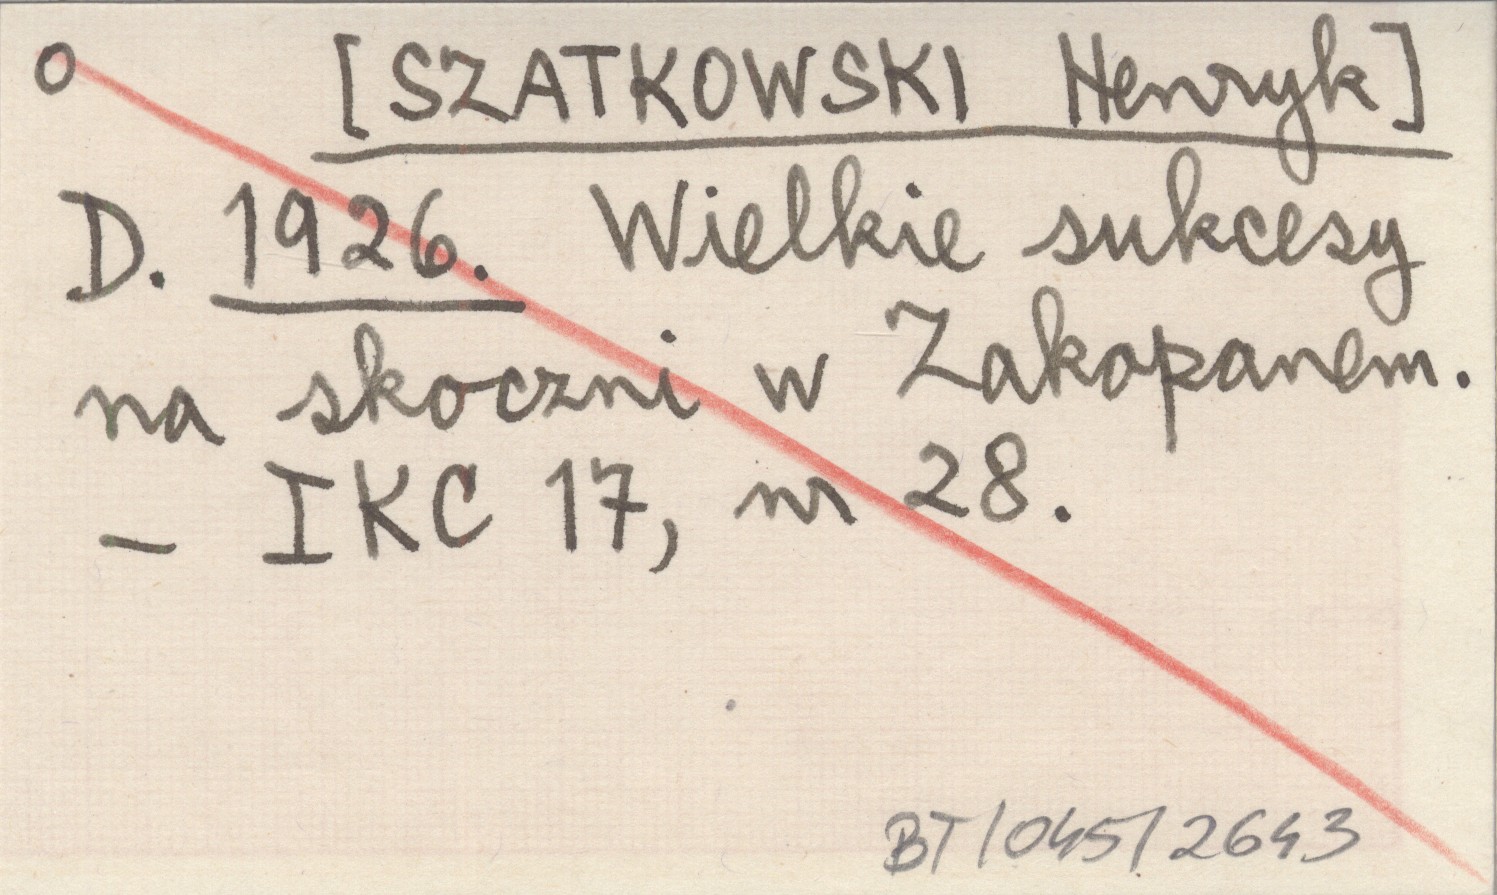 o [SZATKOWSKI Henryk]
D. 1926. Wielkie sukcesy
na skoczni w Zakopanem.
– IKC 17, nr 28.
BT/045/2643